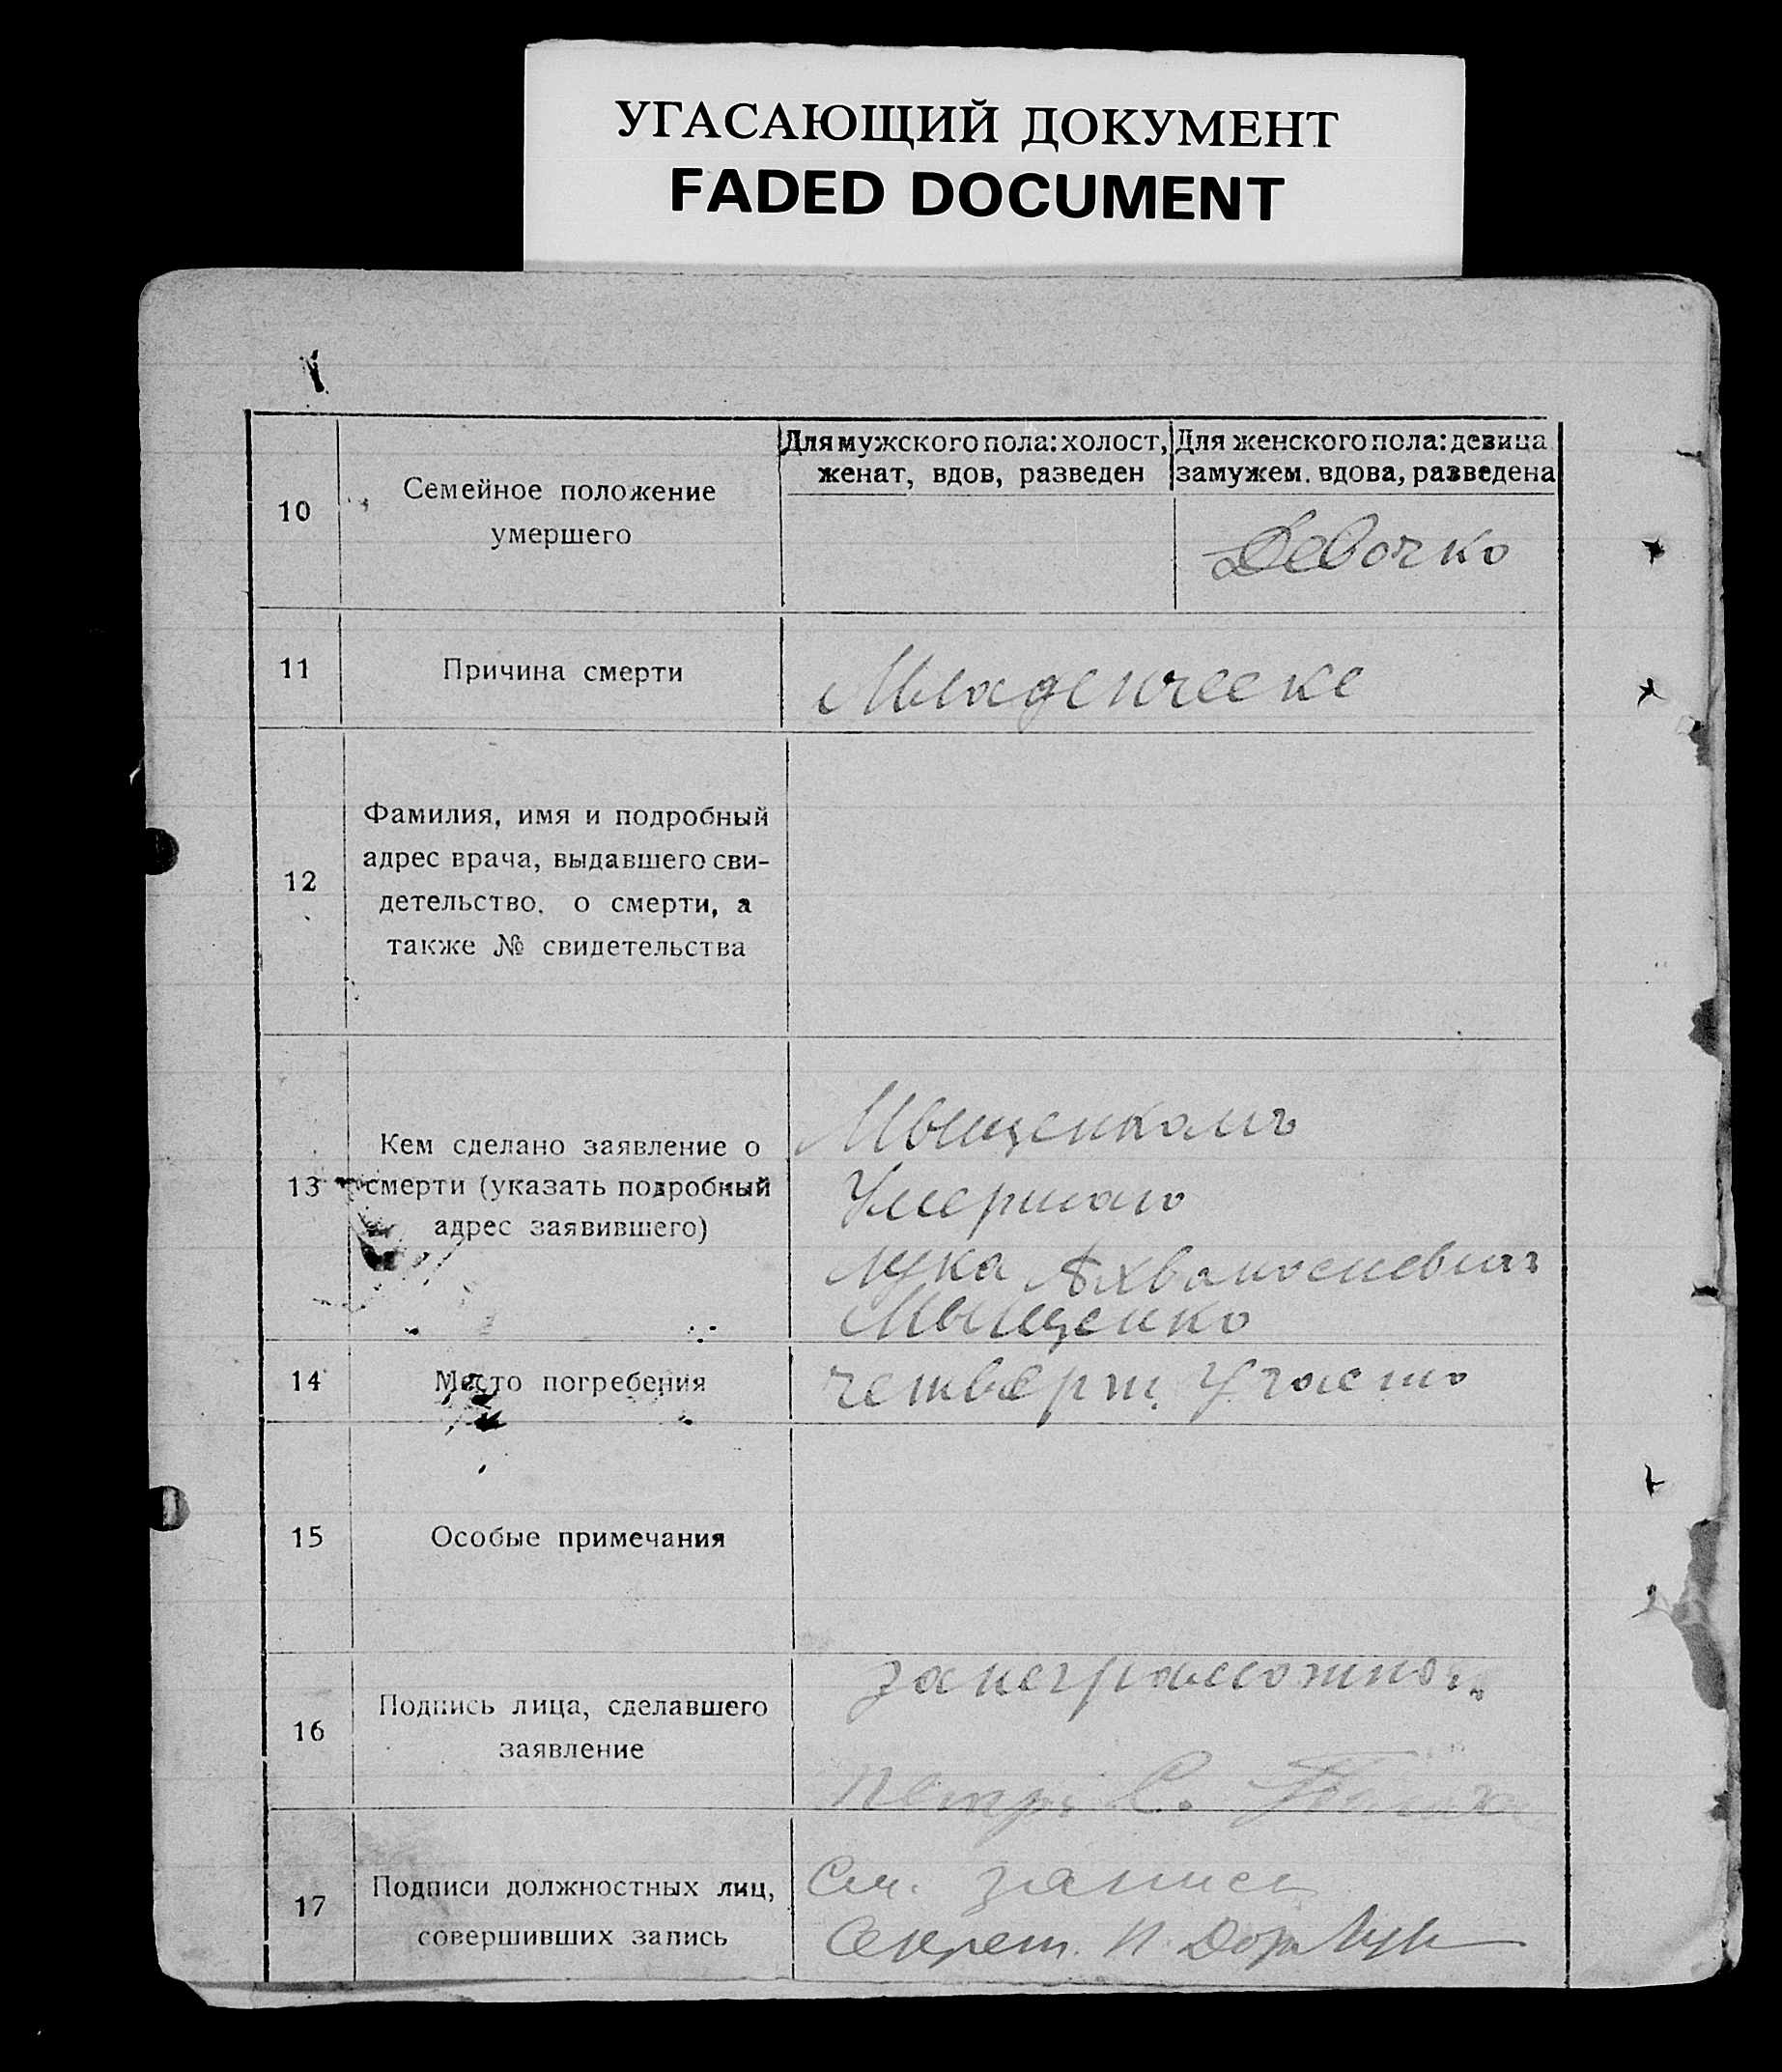 УГАСАЮЩИЙ ДОКУМЕНТ
FADED DOCUMENT
10
Семейное положение
умершего
Для мужского пола: холост,
женат, вдов, разведен
Для женского пола: девица
замужем. вдова, разведена
Девочко
11
Причина смерти
Младенческе
12
Фамилия, имя и подробный
адрес врача, выдавшего сви-
детельство. о смерти, а
также № свидетельства
13
Кем сделано заявление о
смерти (указать подробный
адрес заявившего)
Мыщенкамъ
Умершаго
Лука
Мыщенко
14
Место погребения
четверти Участко
15
Особые примечания
16
Подпись лица, сделавшего
заявление
За неграмотно
Петр С.
17
Подписи должностных лиц,
совершивших запись
См. записи
Секрет. И.